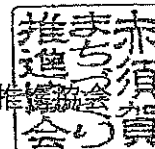 赤須賀
まちづくり
推進会
協会